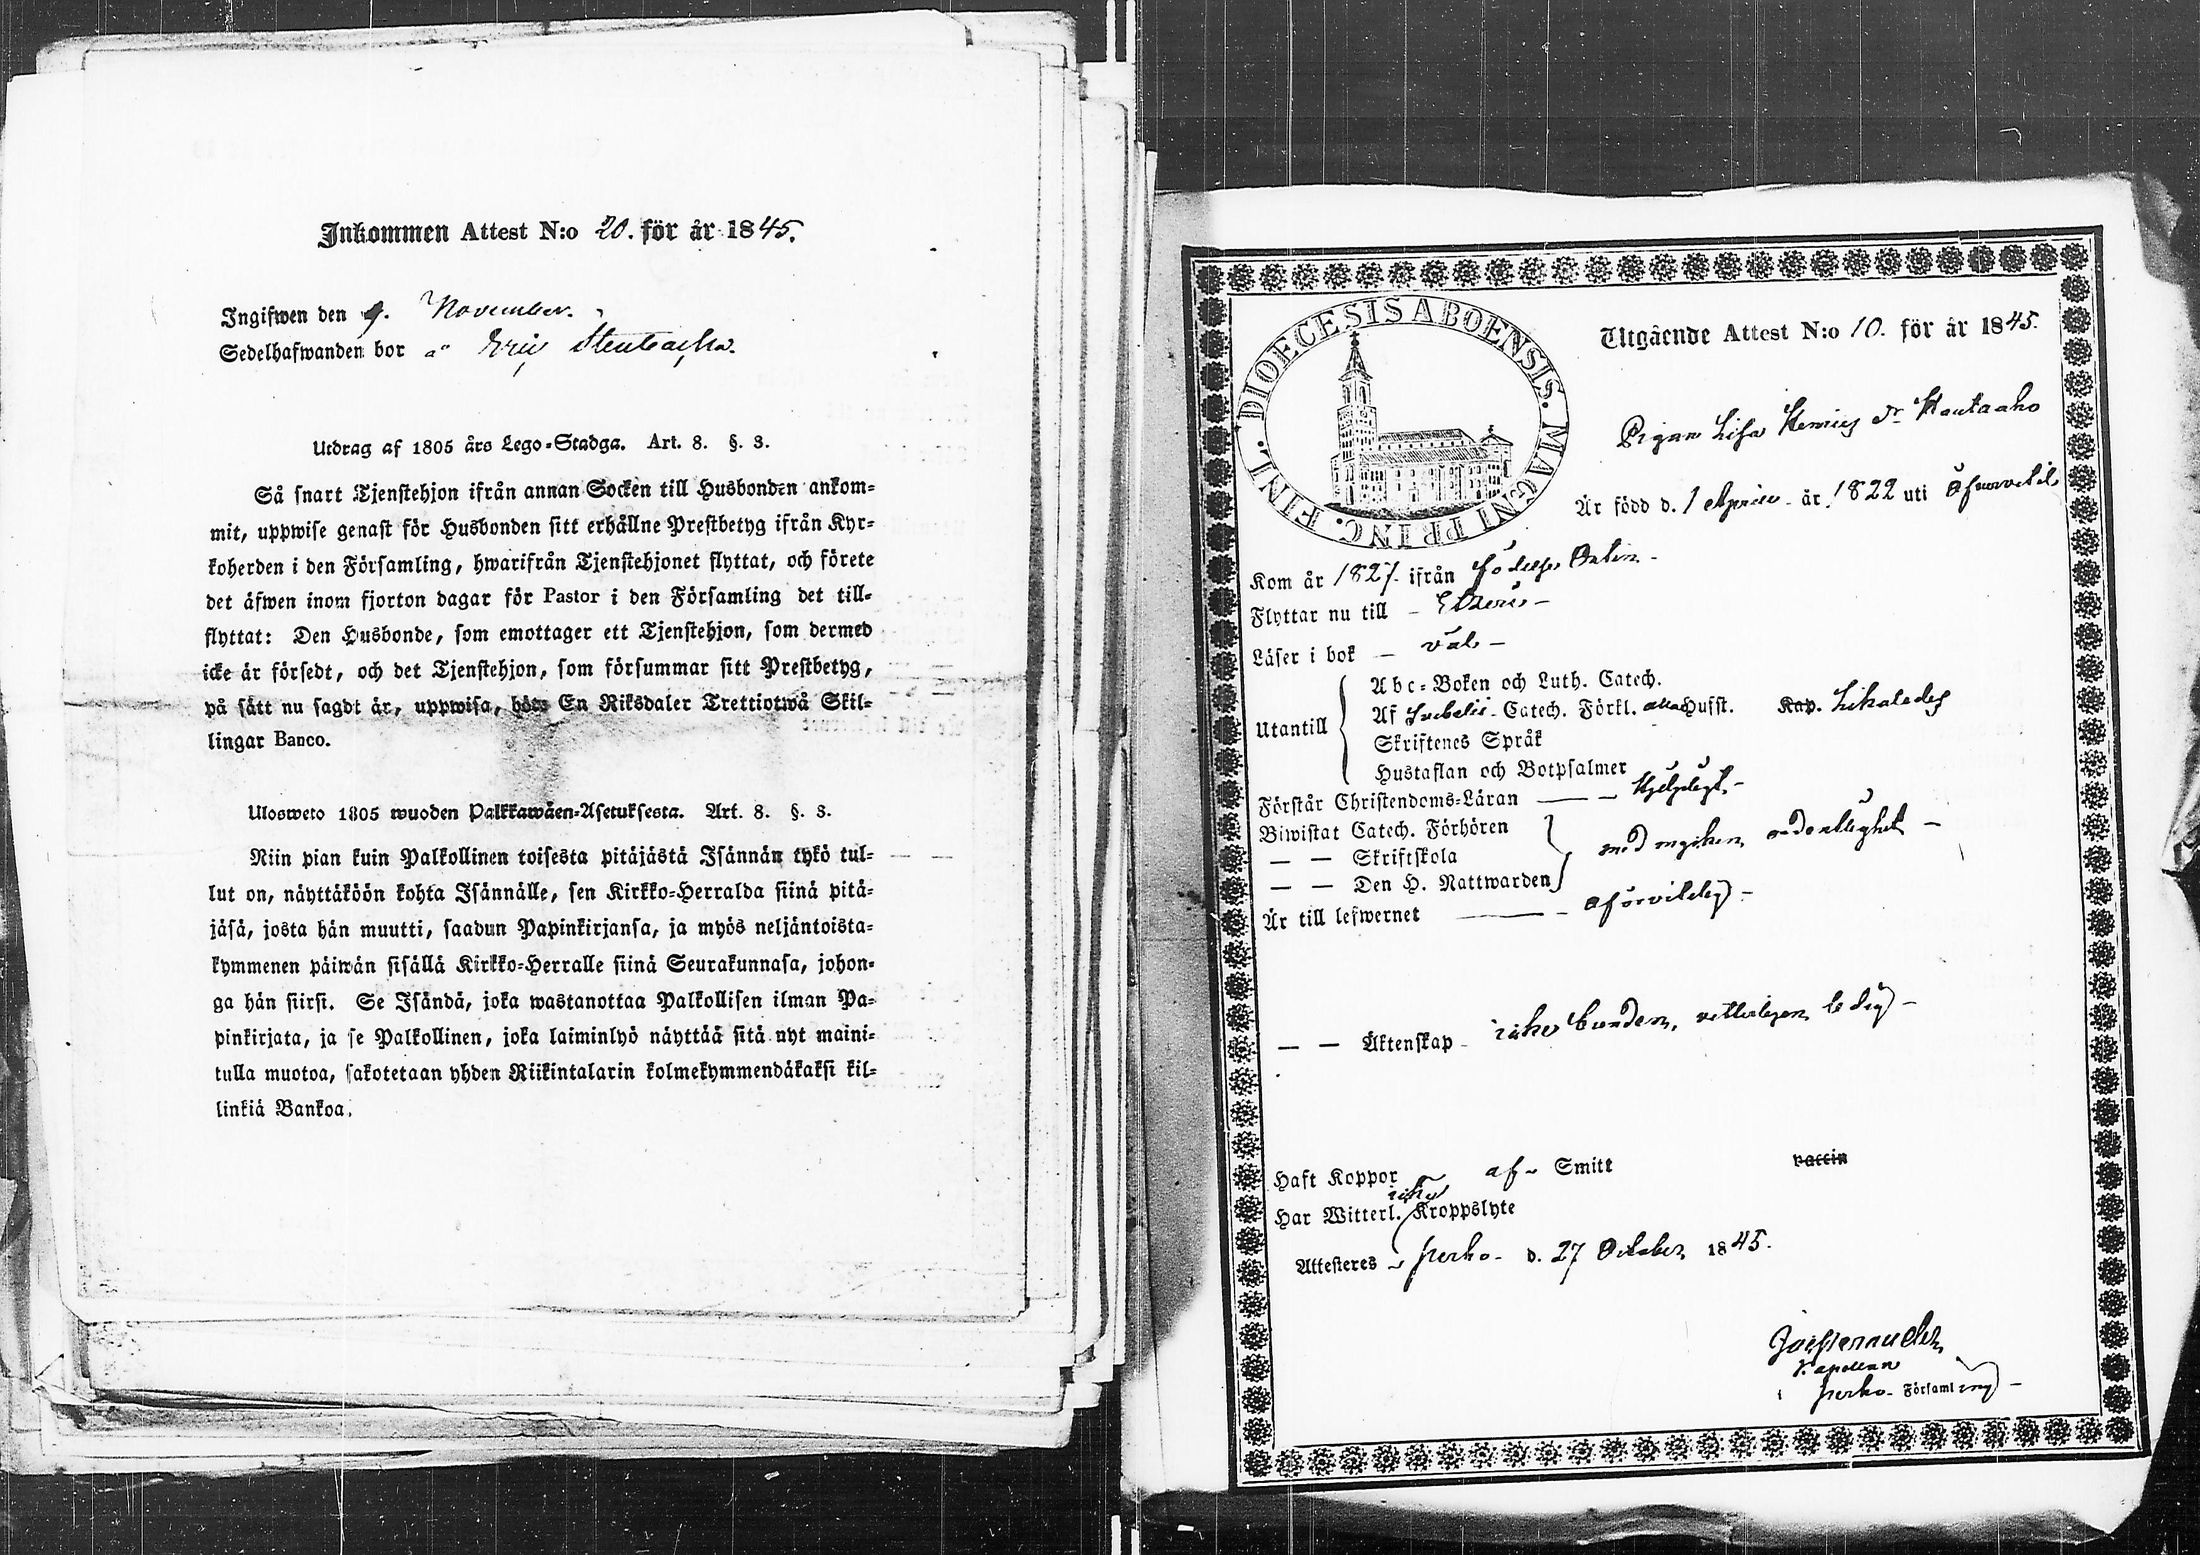 Inkommen Attest N:o 20. för år 1845.
Ingifwen den 9. November.
Sedelhafwanden bor å
Utdrag af 1805 års Lego-Stadga. Art. 8. §. 3.
Så snart Tjenstehjon ifrån annan Socken till Husbonden ankom-
mit, uppwise genast för Husbonden sitt erhållne Prestbetyg ifrån Kyr-
koherden i den Församling, hwarifrån Tjenstehjonet flyttat, och förete
det äfwen inom fjorton dagar för Pastor i den Församling det till-
flyttat: Den Husbonde, som emottager ett Tjenstehjon, som dermed
icke är försedt, och det Tjenstehjon, som försummar sitt Prestbetyg,
på sätt nu sagdt är, uppwisa, böte En Riksdaler Trettiotwå Skil-
lingar Banco.
Ulosweto 1805 wuoden Palkkawäen-Asetuksesta. Art. 8. §. 3.
Niin pian kuin Palkollinen toisesta pitäjästä Isännän tykö tul-
lut on, näyttäköön kohta Isännälle, sen Kirkko-Herralda siinä pitä-
jäsä, josta hän muutti, saadun Papinkirjansa, ja myös neljäntoista-
kymmenen päiwän sisällä Kirkko-Herralle siinä Seurakunnasa, johon-
ga hän siirsi. Se Isändä, joka wastanottaa Palkollisen ilman Pa-
pinkirjata, ja se Palkollinen, joka laiminlyö näyttää sitä nyt maini-
tulla muotoa, sakotetaan yhden Riikintalarin kolmekymmendäkaksi kil-
linkiä Bankoa.
DIOECESIS ABOENSIS. MAGNI PRINC. FINL.
Utgående Attest N:o 10. för år 1845.
Pigan Lisa Henrics dr Kautaaho
Är född d. 1 April år 1822 uti
Kom år 1827. ifrån födelse Orten
Flyttar nu till
Läser i bok — väl —
Utantill
Abc-Boken och Luth. Catech.
Af Svebelii Catech. Förkl. alla Hufst. Kap. likaledes
Skriftenes Språk
Hustaflan och Botpsalmer
Förstår Christendoms-Läran — — hjelpligt —
Biwistat Catech. Förhören
— — Skriftskola med mycken ordentlighet —
— — Den H. Nattwarden
Är till lefwernet — oförvitelig —
— — Äktenskap icke bunden, vetterligen ledig —
Haft Koppor af Smitt vaccin
Har Witterl. icke Kroppslyte
Attesteres Perho d. 27 October 1845.
Kapellan
i Perho Församling